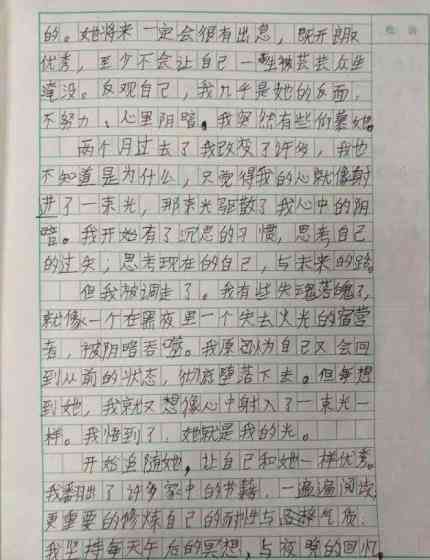 的。她将来一定会很有出息，既开朗又
优秀，至少不会让自己一生被芸芸众生
淹没。反观自己，我几乎是她的反面，
不努力、心里阴暗。我突然有些仰慕她。
两个月过去了我改变了许多，我也
不知道是为什么，只觉得我的心就像射
进了一束光，那束光驱散了我心中的阴
暗。我开始有了沉思的习惯，思考自己
的过失；思考现在的自己，与未来的路。
但我被调走了。我有些失魂落魄了，
就像一个在黑夜里一个失去火光的宿营
者，被阴暗吞噬。我原以为自己又会回
到从前的状态，彻底堕落下去。但每想
到她，我就又想像心中射入了一束光一
样。我悟到了，她就是我的光。
开始追随她，让自己和她一样优秀。
我翻出了许多家中的书籍，一遍遍阅读，
更重要的修炼自己的耐性与气质，
我坚持每天午后的冥想，与夜晚的回忆，